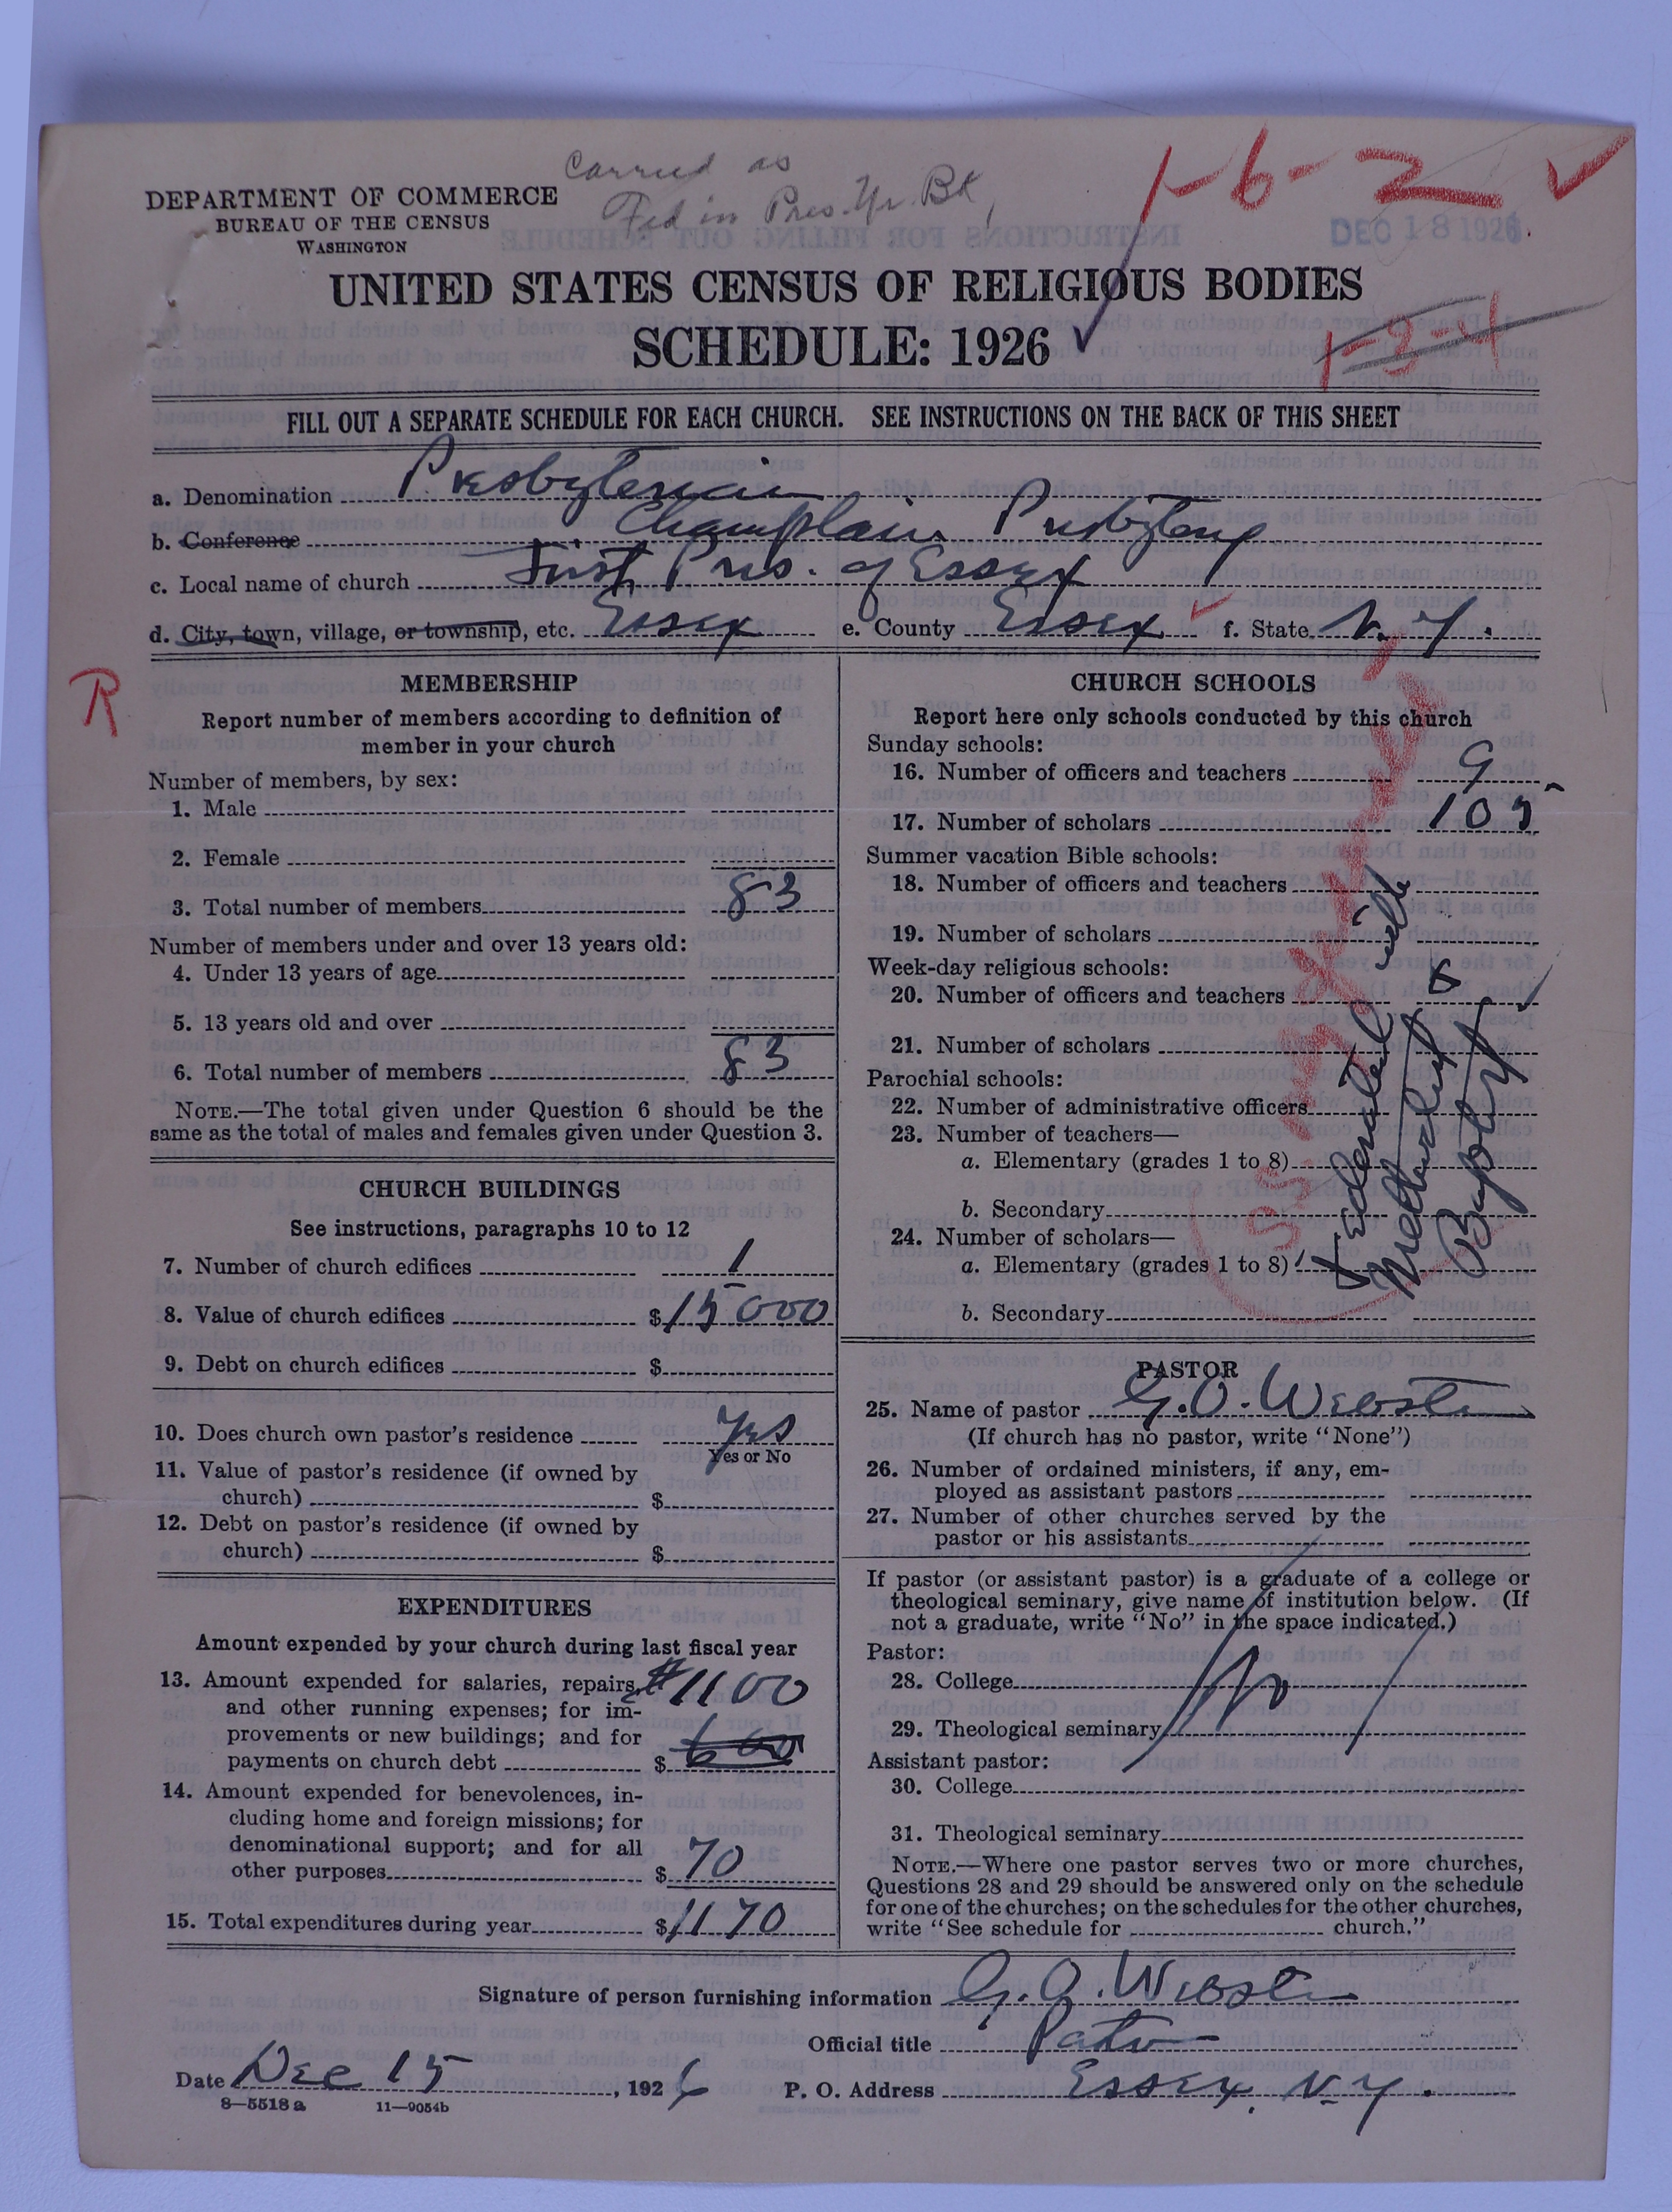 Carried as
Fed in Pres. Yr. Bk,
1-6-2
DEPARTMENT OF COMMERCE
BUREAU OF THE CENSUS
WASHINGTON
DEC 18 1926
UNITED STATES CENSUS OF RELIGIOUS BODIES
SCHEDULE: 1926
1-3-4
FILL OUT A SEPARATE SCHEDULE FOR EACH CHURCH. SEE INSTRUCTIONS ON THE BACK OF THIS SHEET
a. Denomination Presbyterian
b. Conference Champlain Presbytery
c. Local name of church First Pres. of Essex
d. City, town, village, or township, etc. Essex e. County Essex f. State N. Y.
R
MEMBERSHIP
Report number of members according to definition of
member in your church
Number of members, by sex:
1. Male
2. Female
3. Total number of members 83
Number of members under and over 13 years old:
4. Under 13 years of age
5. 13 years old and over
6. Total number of members 83
NOTE.—The total given under Question 6 should be the
same as the total of males and females given under Question 3.
CHURCH BUILDINGS
See instructions, paragraphs 10 to 12
7. Number of church edifices 1
8. Value of church edifices $15000
9. Debt on church edifices $
10. Does church own pastor's residence Yes
Yes or No
11. Value of pastor's residence (if owned by
church) $
12. Debt on pastor's residence (if owned by
church) $
EXPENDITURES
Amount expended by your church during last fiscal year
13. Amount expended for salaries, repairs, $1100
and other running expenses; for im-
provements or new buildings; and for
payments on church debt $ 600
14. Amount expended for benevolences, in-
cluding home and foreign missions; for
denominational support; and for all
other purposes $ 70
15. Total expenditures during year $1170
CHURCH SCHOOLS
Report here only schools conducted by this church
Sunday schools:
16. Number of officers and teachers 9
17. Number of scholars 105
Summer vacation Bible schools:
18. Number of officers and teachers
19. Number of scholars
Week-day religious schools:
20. Number of officers and teachers
21. Number of scholars
Parochial schools:
22. Number of administrative officers
23. Number of teachers—
a. Elementary (grades 1 to 8)
b. Secondary
24. Number of scholars—
a. Elementary (grades 1 to 8)
b. Secondary
Federated with
Methodist &
Baptist
PASTOR
25. Name of pastor G. O. Webster
(If church has no pastor, write "None")
26. Number of ordained ministers, if any, em-
ployed as assistant pastors
27. Number of other churches served by the
pastor or his assistants
If pastor (or assistant pastor) is a graduate of a college or
theological seminary, give name of institution below. (If
not a graduate, write "No" in the space indicated.)
Pastor:
28. College No
29. Theological seminary
Assistant pastor:
30. College
31. Theological seminary
NOTE.—Where one pastor serves two or more churches,
Questions 28 and 29 should be answered only on the schedule
for one of the churches; on the schedules for the other churches,
write "See schedule for church."
Signature of person furnishing information G. O. Webster
Official title Pastor
Date Dec 15, 1926 P. O. Address Essex, N. Y.
8—5518 a 11—9054b